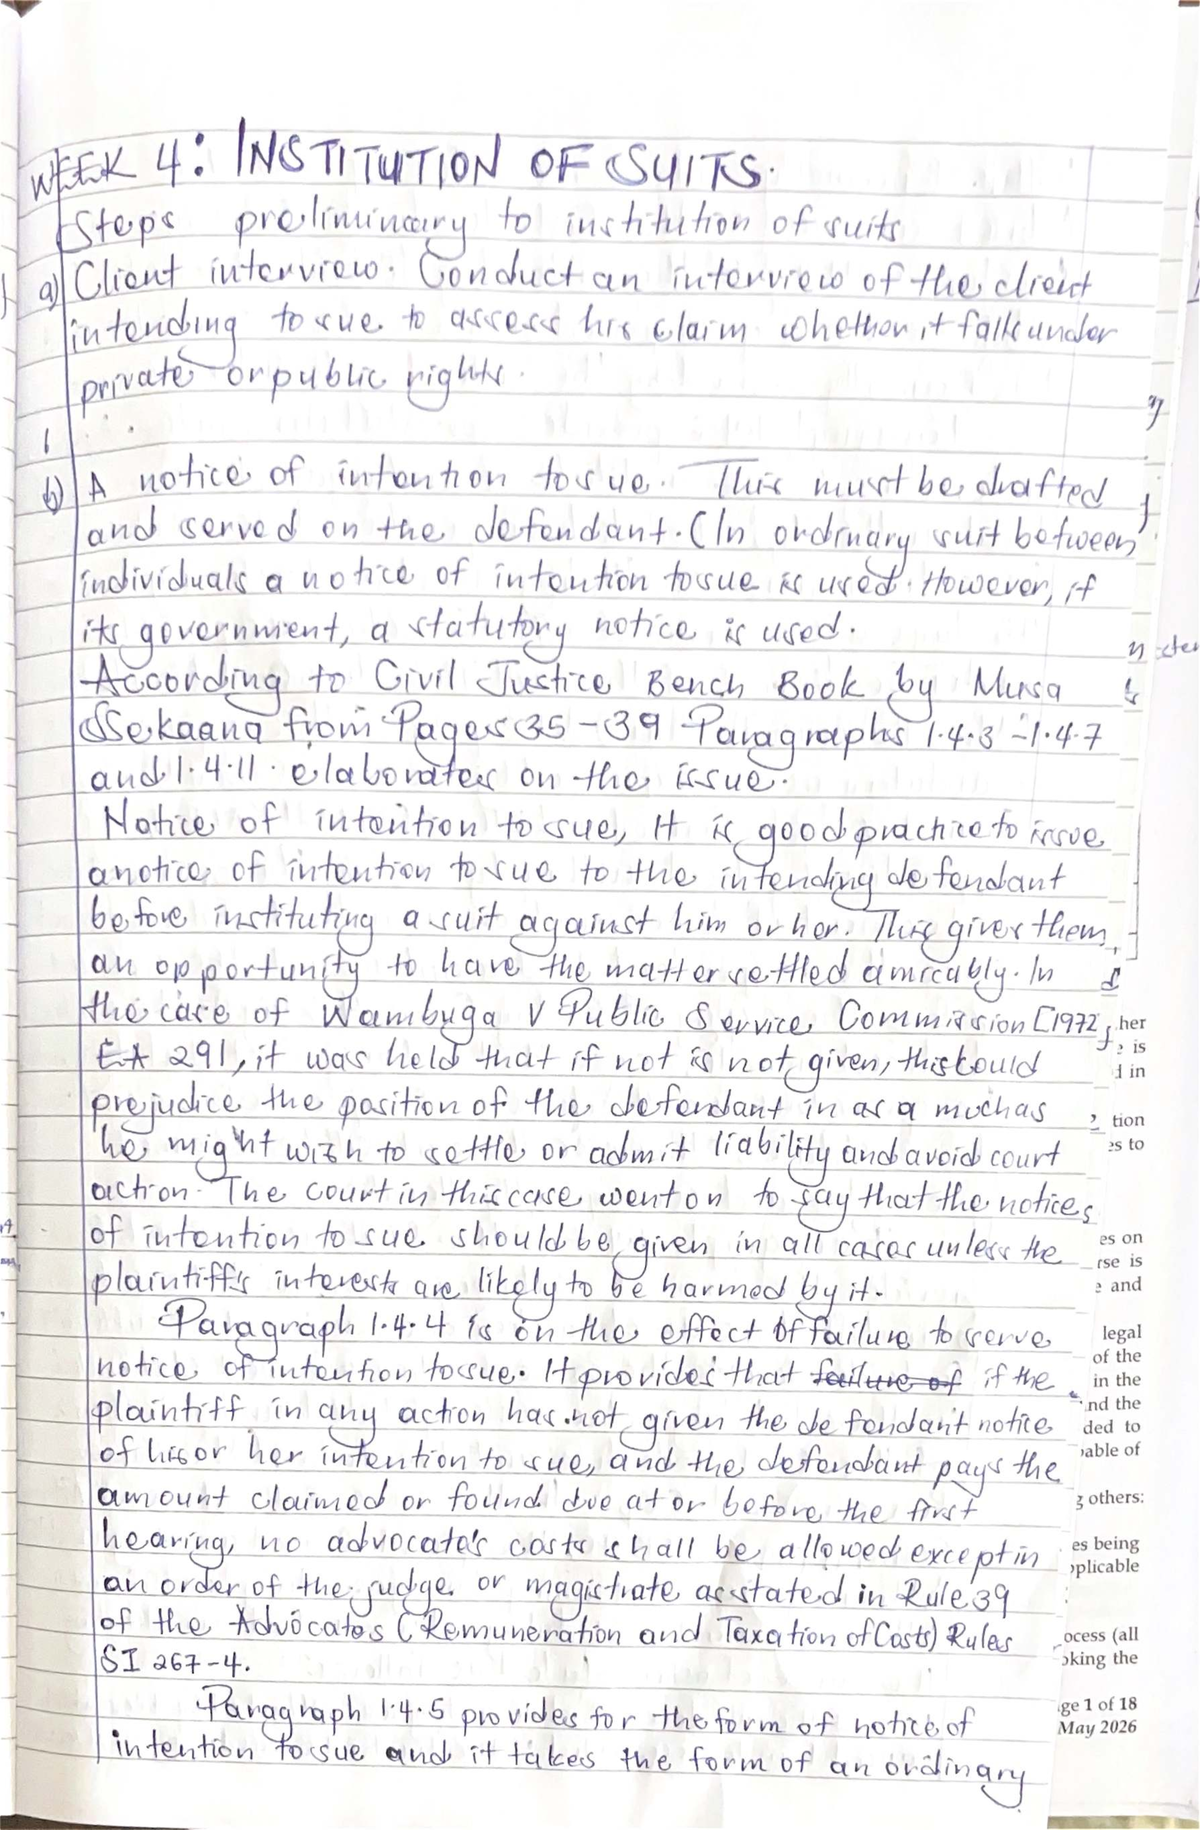 WEEK 4: INSTITUTION OF SUITS.
Steps preliminary to institution of suits
a) Client interview. Conduct an interview of the client
intending to sue to assess his claim whether it falls under
private or public rights.
b) A notice of intention to sue. This must be drafted
and served on the defendant. (In ordinary suit between
individuals a notice of intention to sue is used. However, if
its government, a statutory notice is used.
According to Civil Justice Bench Book by Musa
Ssekaana from Pages 35-39 Paragraphs 1.4.3 -1.4.7
and 1.4.11. elaborates on the issue.
Notice of intention to sue, It is good practice to issue
a notice of intention to sue to the intending defendant
before instituting a suit against him or her. This gives them
an opportunity to have the matter settled amicably. In
the case of Wambuga V Public Service Commission [1972
EA 291, it was held that if not is not given, this could
prejudice the position of the defendant in as a much as
he might wish to settle or admit liability and avoid court
action. The court in this case went on to say that the notices
of intention to sue should be given in all cases unless the
plaintiff's interests are likely to be harmed by it.
Paragraph 1.4.4 is on the effect of failure to serve
notice of intention to sue. It provides that failure of if the
plaintiff in any action has not given the defendant notice
of his or her intention to sue, and the defendant pays the
amount claimed or found due at or before the first
hearing, no advocate's costs shall be allowed except in
an order of the judge or magistrate as stated in Rule 39
of the Advocates (Remuneration and Taxation of Costs) Rules
SI 267-4.
Paragraph 1.4.5 provides for the form of notice of
intention to sue and it takes the form of an ordinary
her
is
d in
tion
es to
es on
rse is
and
legal
of the
in the
and the
ded to
able of
g others:
es being
pplicable
ocess (all
oking the
ge 1 of 18
May 2026